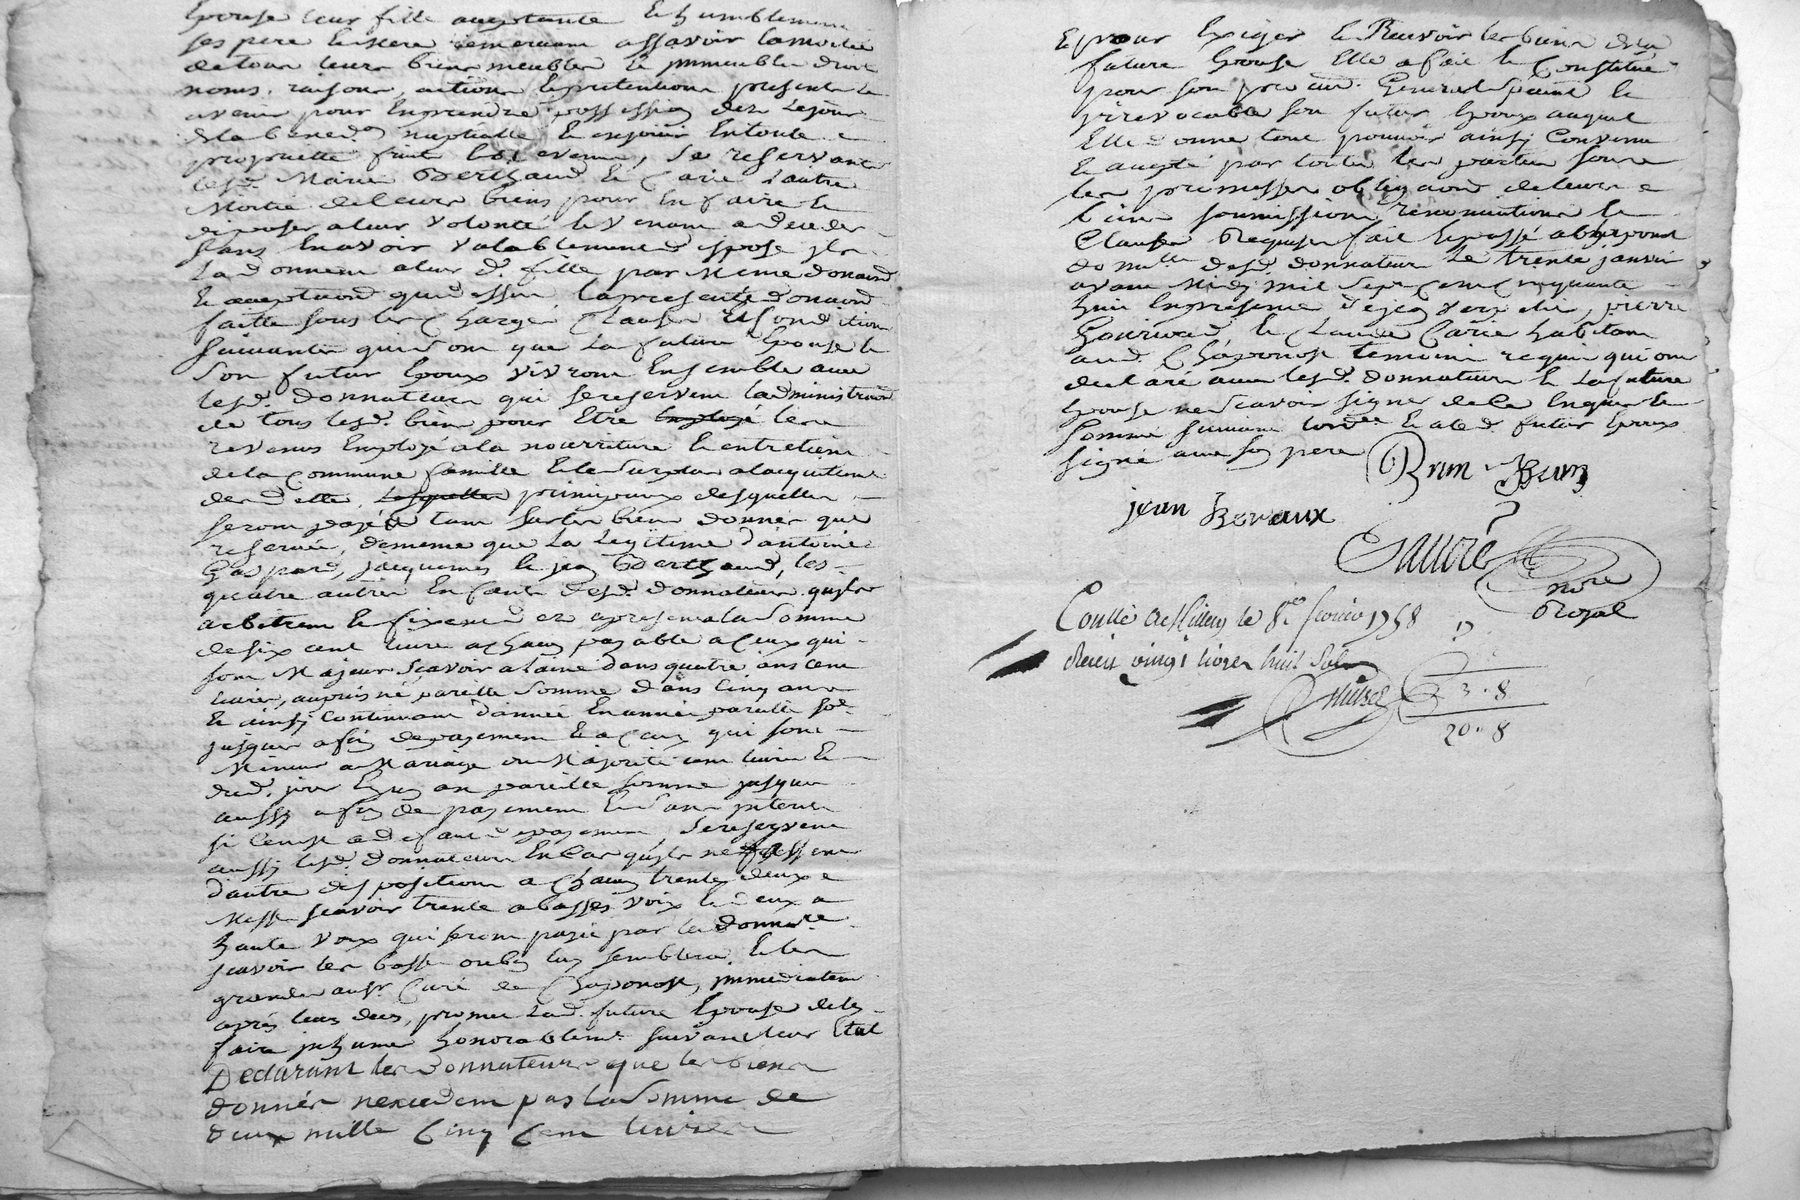 Epouse leur fille acceptante et humblement
ses pere et mere remerciant assavoir la moitié
de tous leurs biens meubles et immeubles droits
noms, raisons, actions et pretentions presents et
avenir pour en prendre possession dez le jour
de la bened.on nuptialle et en jouir en toute
proprietté fruits et revenus, se reservants
lesd. Marie Berthaud et Carie l'autre
Moitié de leurs biens pour en faire et
disposer a leur volonté et venant a deceder
sans en avoir valablement disposé ils
la donnent a leur d. fille par meme donaõn
et acceptaõn que dessus, la presente donaõn
faitte sous les charges clauses et conditions
suivantes qui sont que la future Epouse et
son futur Epoux vivront ensemble avec
lesd. donnateurs qui se reservent l'administraõn
de tous lesd. biens pour etre employé les
revenus employé a la nourriture et entretient
de la commune famille et le surplus a l'acquittement
des dettes, lesquelles principaux desquelles
seront payés tant sur les biens donnés que
reservés, de meme que la legitime d'antoine
Gaspard, jacquemes et jean Berthaud, les
quatre autres Enfants desd. donnateurs qu'ils
arbitrent et fixent dez apresent a la somme
de six cent livres a chacun payable a ceux qui
sont Majeurs, scavoir a l'ainé dans quatre ans cent
livres, au puis né pareille somme dans cinq ans
et ainsy continuant d'année en année pareille so.e
jusques a fin de payement et a ceux qui sont
Mineurs a Mariage ou Majorité cent livres et
dud. jour En un an pareille somme jusques
aussy a fin de payement et sans interets
si ce n'est a deffaut de payement, se reservent
aussy lesd. donnateurs En cas qu'ils ne fassent
d'autre dispositions a chacun trente deux
Messes scavoir trente a basses voix et deux a
haute voix qui seront payés par la donna.re
scavoir les basses ou bon luy semblera, et les
grandes au sr. Curé de Chaponost, immediatem.
aprés leurs deces, promet lad. future Epouse de les
faire inhumer honorablem.t suivant leur Etat
Declarant les donnateurs que les biens
donnés nexcedent pas la somme de
deux mille cinq cent livres
Et pour Exiger et Recevoir les biens de la
future Epouse Elle a fait et Constitué
pour son procur. General special et
irrevocable son futur Epoux auquel
Elle donne tout pouvoir ainsy Convenu
et accepté par toutes les parties sous
les promesses obligaõns de leurs
biens soumissions, renonciations et
Clauses Requises fait et passé a Chaponost
domi.lle desd. donnateurs le trente janvier
avant Midy mil sept cent cinquante
huit En presence de pierre
et Claude Carie habitans
aud. Chaponost temoins requis qui ont
declaré avec lesd. donnateurs et la future
Epouse ne scavoir signer de ce Enquis et
sommés suivant l'ord.ce Et a led. futur Epoux
signé avec son pere
Brun Brun
jean Beraux
no.re
Royal
Conllé a Millery le 8.e fevrier 1758
Recu vingt livres huit sols
3 . 8
20 . 8